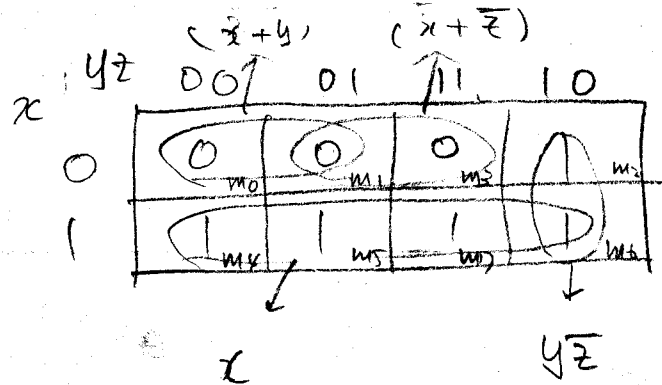 (x+y) (x+z̅)
x yz 00 01 11 10
0 0 m₀ 0 m₁ 0 m₃ 1 m₂
1 1 m₄ 1 m₅ 1 m₇ 1 m₆
x yz̅